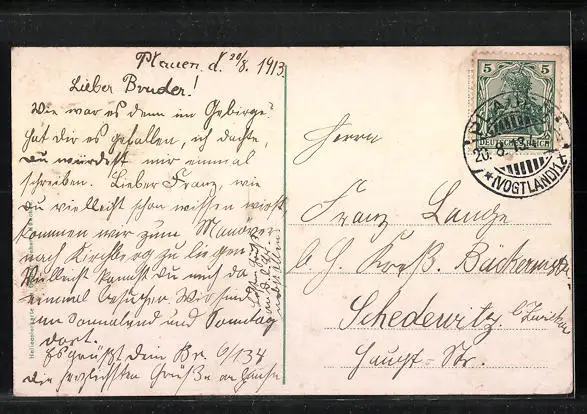 Plauen d. 20/8. 1913.
Lieber Bruder!
Wie war es denn im Gebirge?
hat dir es gefallen, ich dachte,
Du würdest mir einmal
schreiben. Lieber Franz, wie
du vielleicht schon wissen wirst
kommen wir zum Manöver
nach Kirchberg zu liegen
Vielleicht kannst du auch da
einmal besuchen. Wir sind
im Sonnabend und Sonntag
dort.
Es grüßt dein Br. 9/134
die herzlichsten Grüße an
Herrn
Franz Lange
b. H. Kreß. Bäckermstr.
Schedewitz b. Zwickau
Haupt-Str.
5 5
DEUTSCHES REICH
PLAUEN
20.8.13
(VOGTLAND)